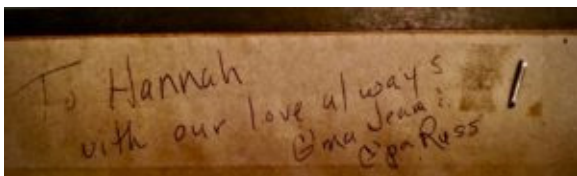 To Hannah
with our love always
G'ma Jean &
G'pa Russ